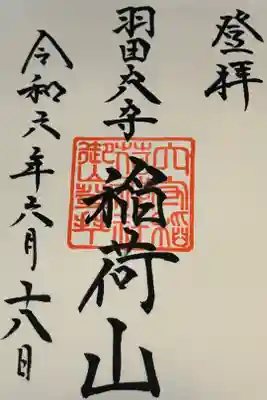 登拝
羽田穴守
稲荷山
令和六年六月十八日